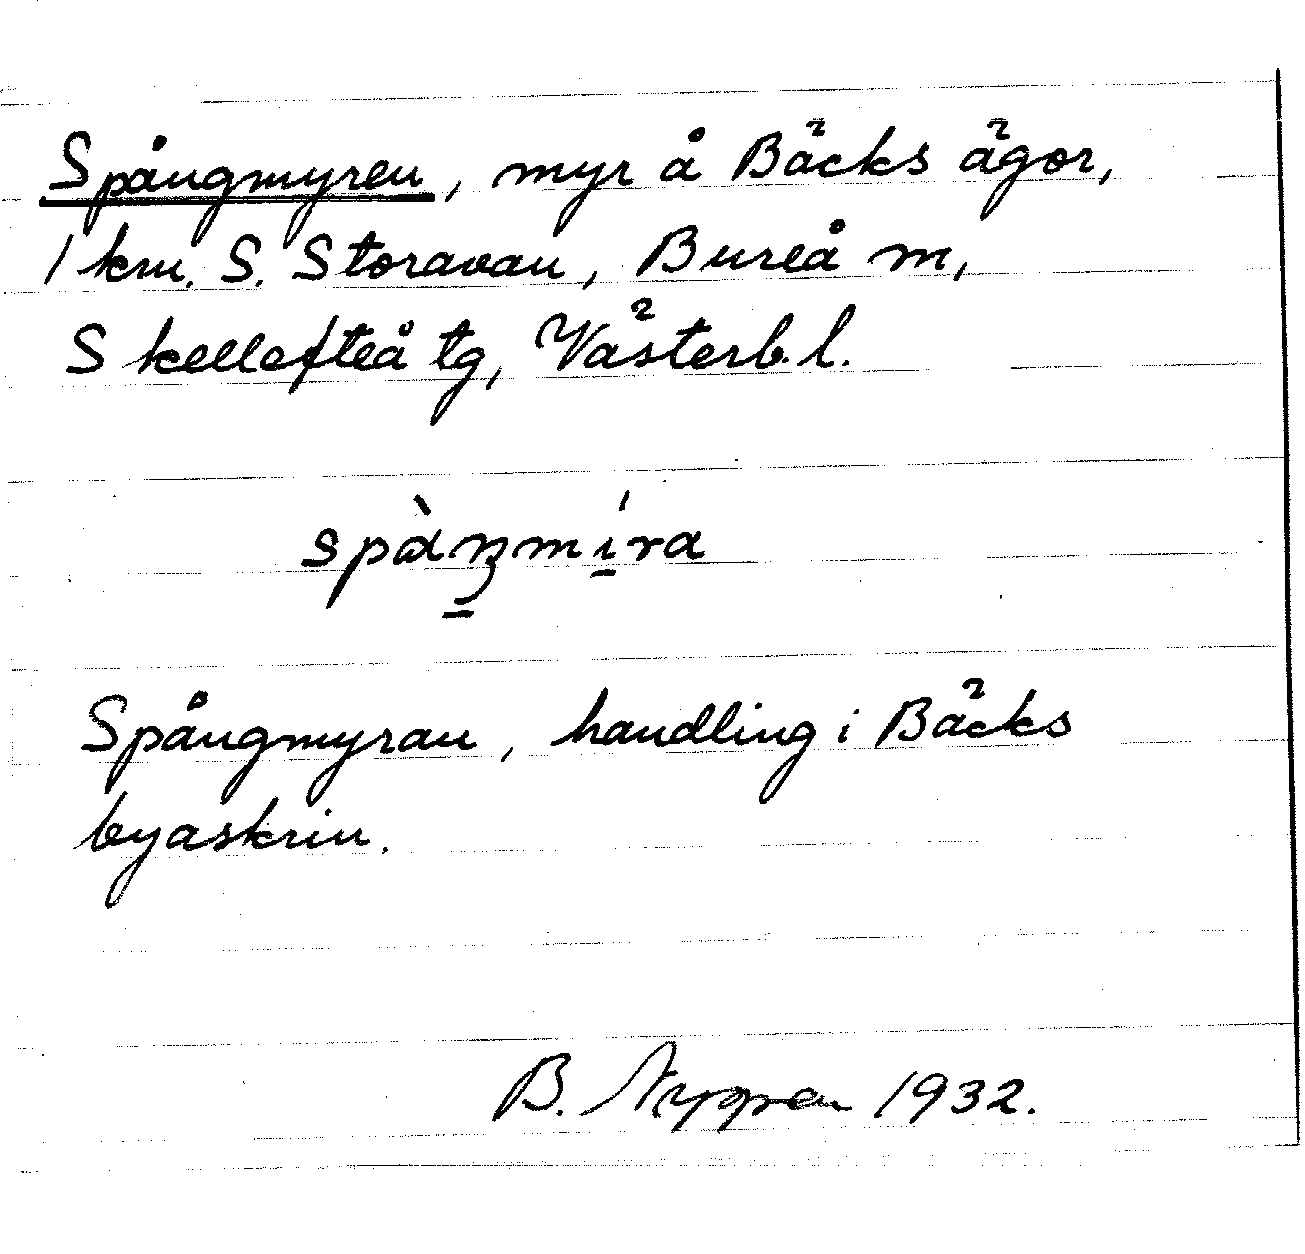 Spångmyren, myr å Bäcks ägor,
1 km. S. Storavan, Bureå m,
Skellefteå tg, Västerb. l.
spàŋmíra
Spångmyran, handling i Bäcks
byaskrin.
B. Nygren 1932.